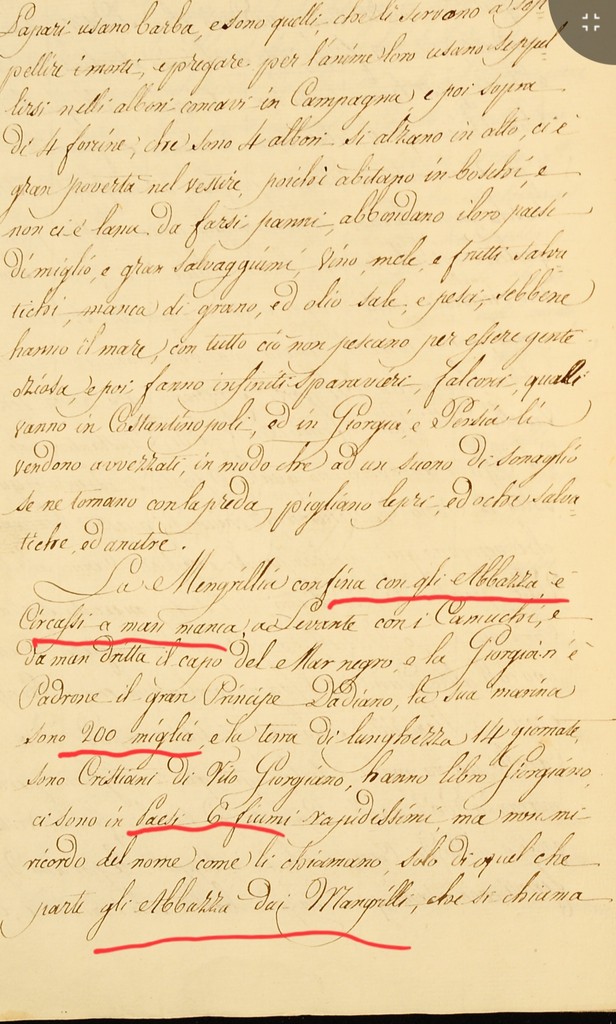 Papari usano barba, e sono quelli, che li servano a sop-
pellire i morti, e pregare per l'anime loro usano seppel-
lirsi nelli albori concavi in Campagna, e poi sopra
di 4 forcine, che sono 4 albori si alzano in alto, ci è
gran povertà nel vestire, poichi abitano in boschi, e
non ci è lana da farsi panni, abbondano i loro paesi
di miglio, e gran salvaggiumi, vino, mele, e frutti salva
tichi, manca di grano, ed olio sale, e pesci, sebbene
hanno il mare, con tutto ciò non pescano per essere gente
oziosa, e poi fanno infiniti sparavieri, falconi, quali
vanno in Costantinopoli, ed in Giorgia, e Persia li
vendono avvezzati, in modo che ad un suono di sonaglio
se ne tornano con la preda, pigliano lepri, ed oche salva-
tiche, ed anatre.
La Mengrillia confina con gli Abbazza e
Circassi a man manca, a Levante con i Camuchi, e
da man dritta il capo del Mar negro, e la Giorgia n'è
Padrone il gran Principe Dadiano, la sua marina
sono 200 miglia, e la terra di lunghezza 14 giornate,
sono Cristiani di Rito Giorgiano, hanno libro Giorgiano,
ci sono in Paesi 6 fiumi rapidissimi, ma non mi
ricordo del nome come li chiamano, solo di quel che
parte gli Abbazza dai Mangrilli, che si chiama